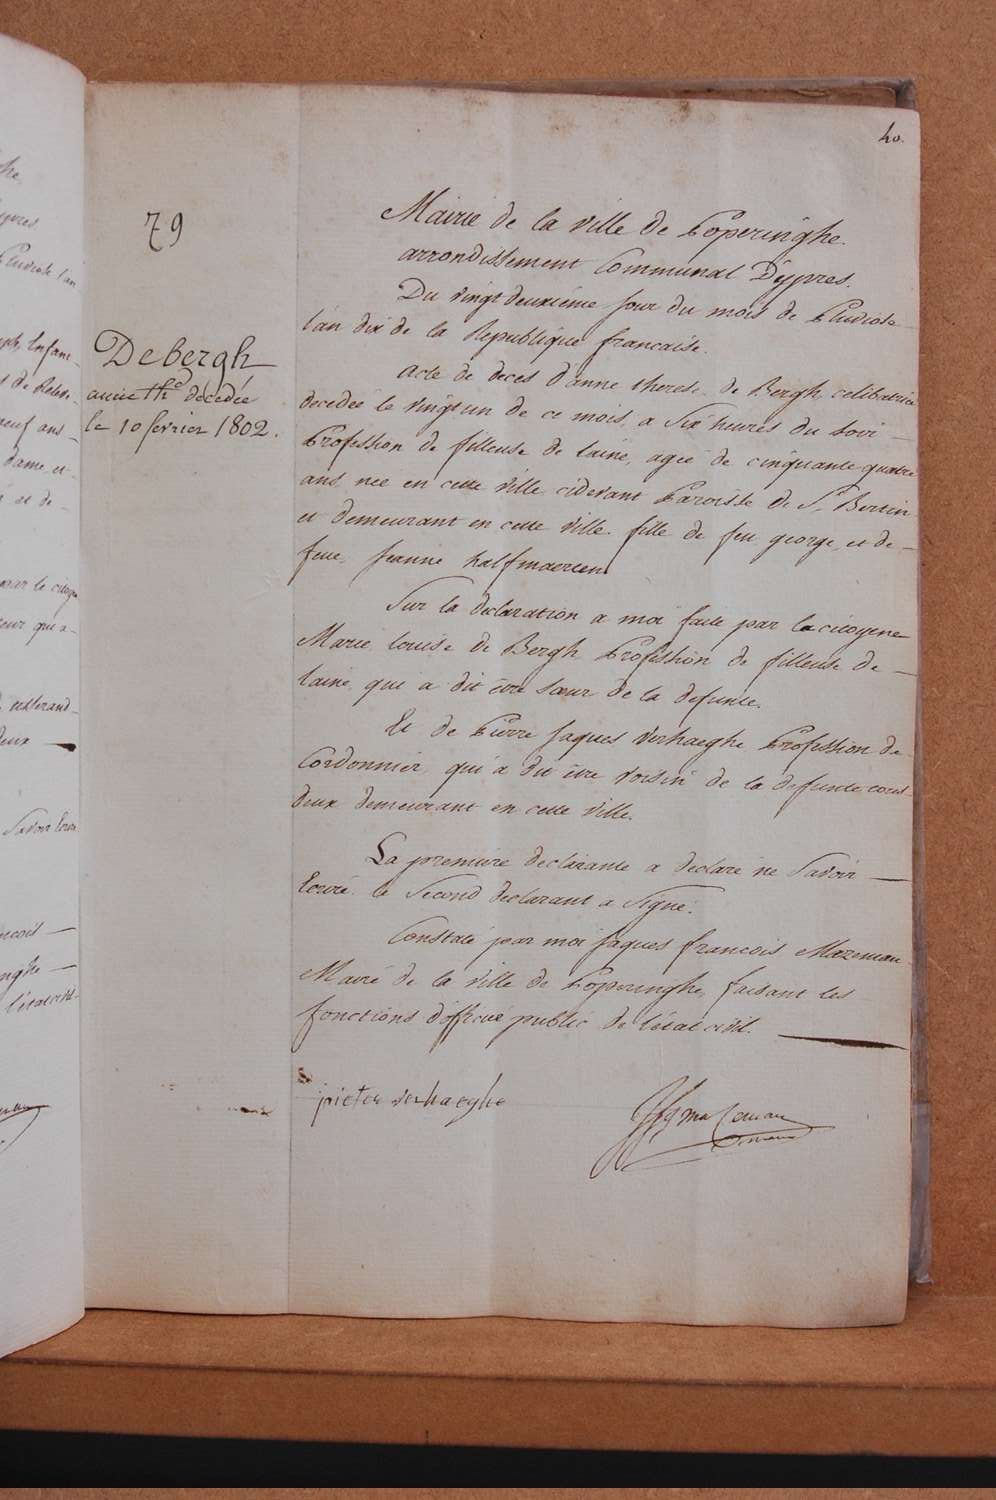 40.
79
Mairie de la ville de Poperinghe.
arrondissement Communal D'ÿpres.
Du vingt deuxiéme jour du mois de Pluviose
l'an dix de la Republique francaise.
Debergh
anne th.e décedée
le 10 fevrier 1802.
Acte de deces d'anne therese de Bergh, celibatrice
decedée le vingt un de ce mois, a Six heures du soir —
Profession de filleuse de laine, ageé de cinquante quatre
ans née en cette ville cidevant Paroisse de S.t Bertin
et demeurant en cette ville. fille de feu george, et de —
feue, Jeanne halfmaerten
Sur la declaration a moi faite par la citoyene
Marie louise de Bergh Profession de filleuse de —
laine, qui a dit être sœur de la defunte.
Et de Pierre Jaques Verhaeghe Profession de
Cordonnier, qui a dit être voisin de la defunte tous
deux demeurant en cette ville.
La premiere declarante a declaré ne Savoir —
Ecrire. le Second declarant a Signé.
Constaté par moi Jaques francois Mazeman
Maire de la ville de Poperinghe, faisant les
fonctions d'officié public de l'état civil. —
pieter verhaeghe